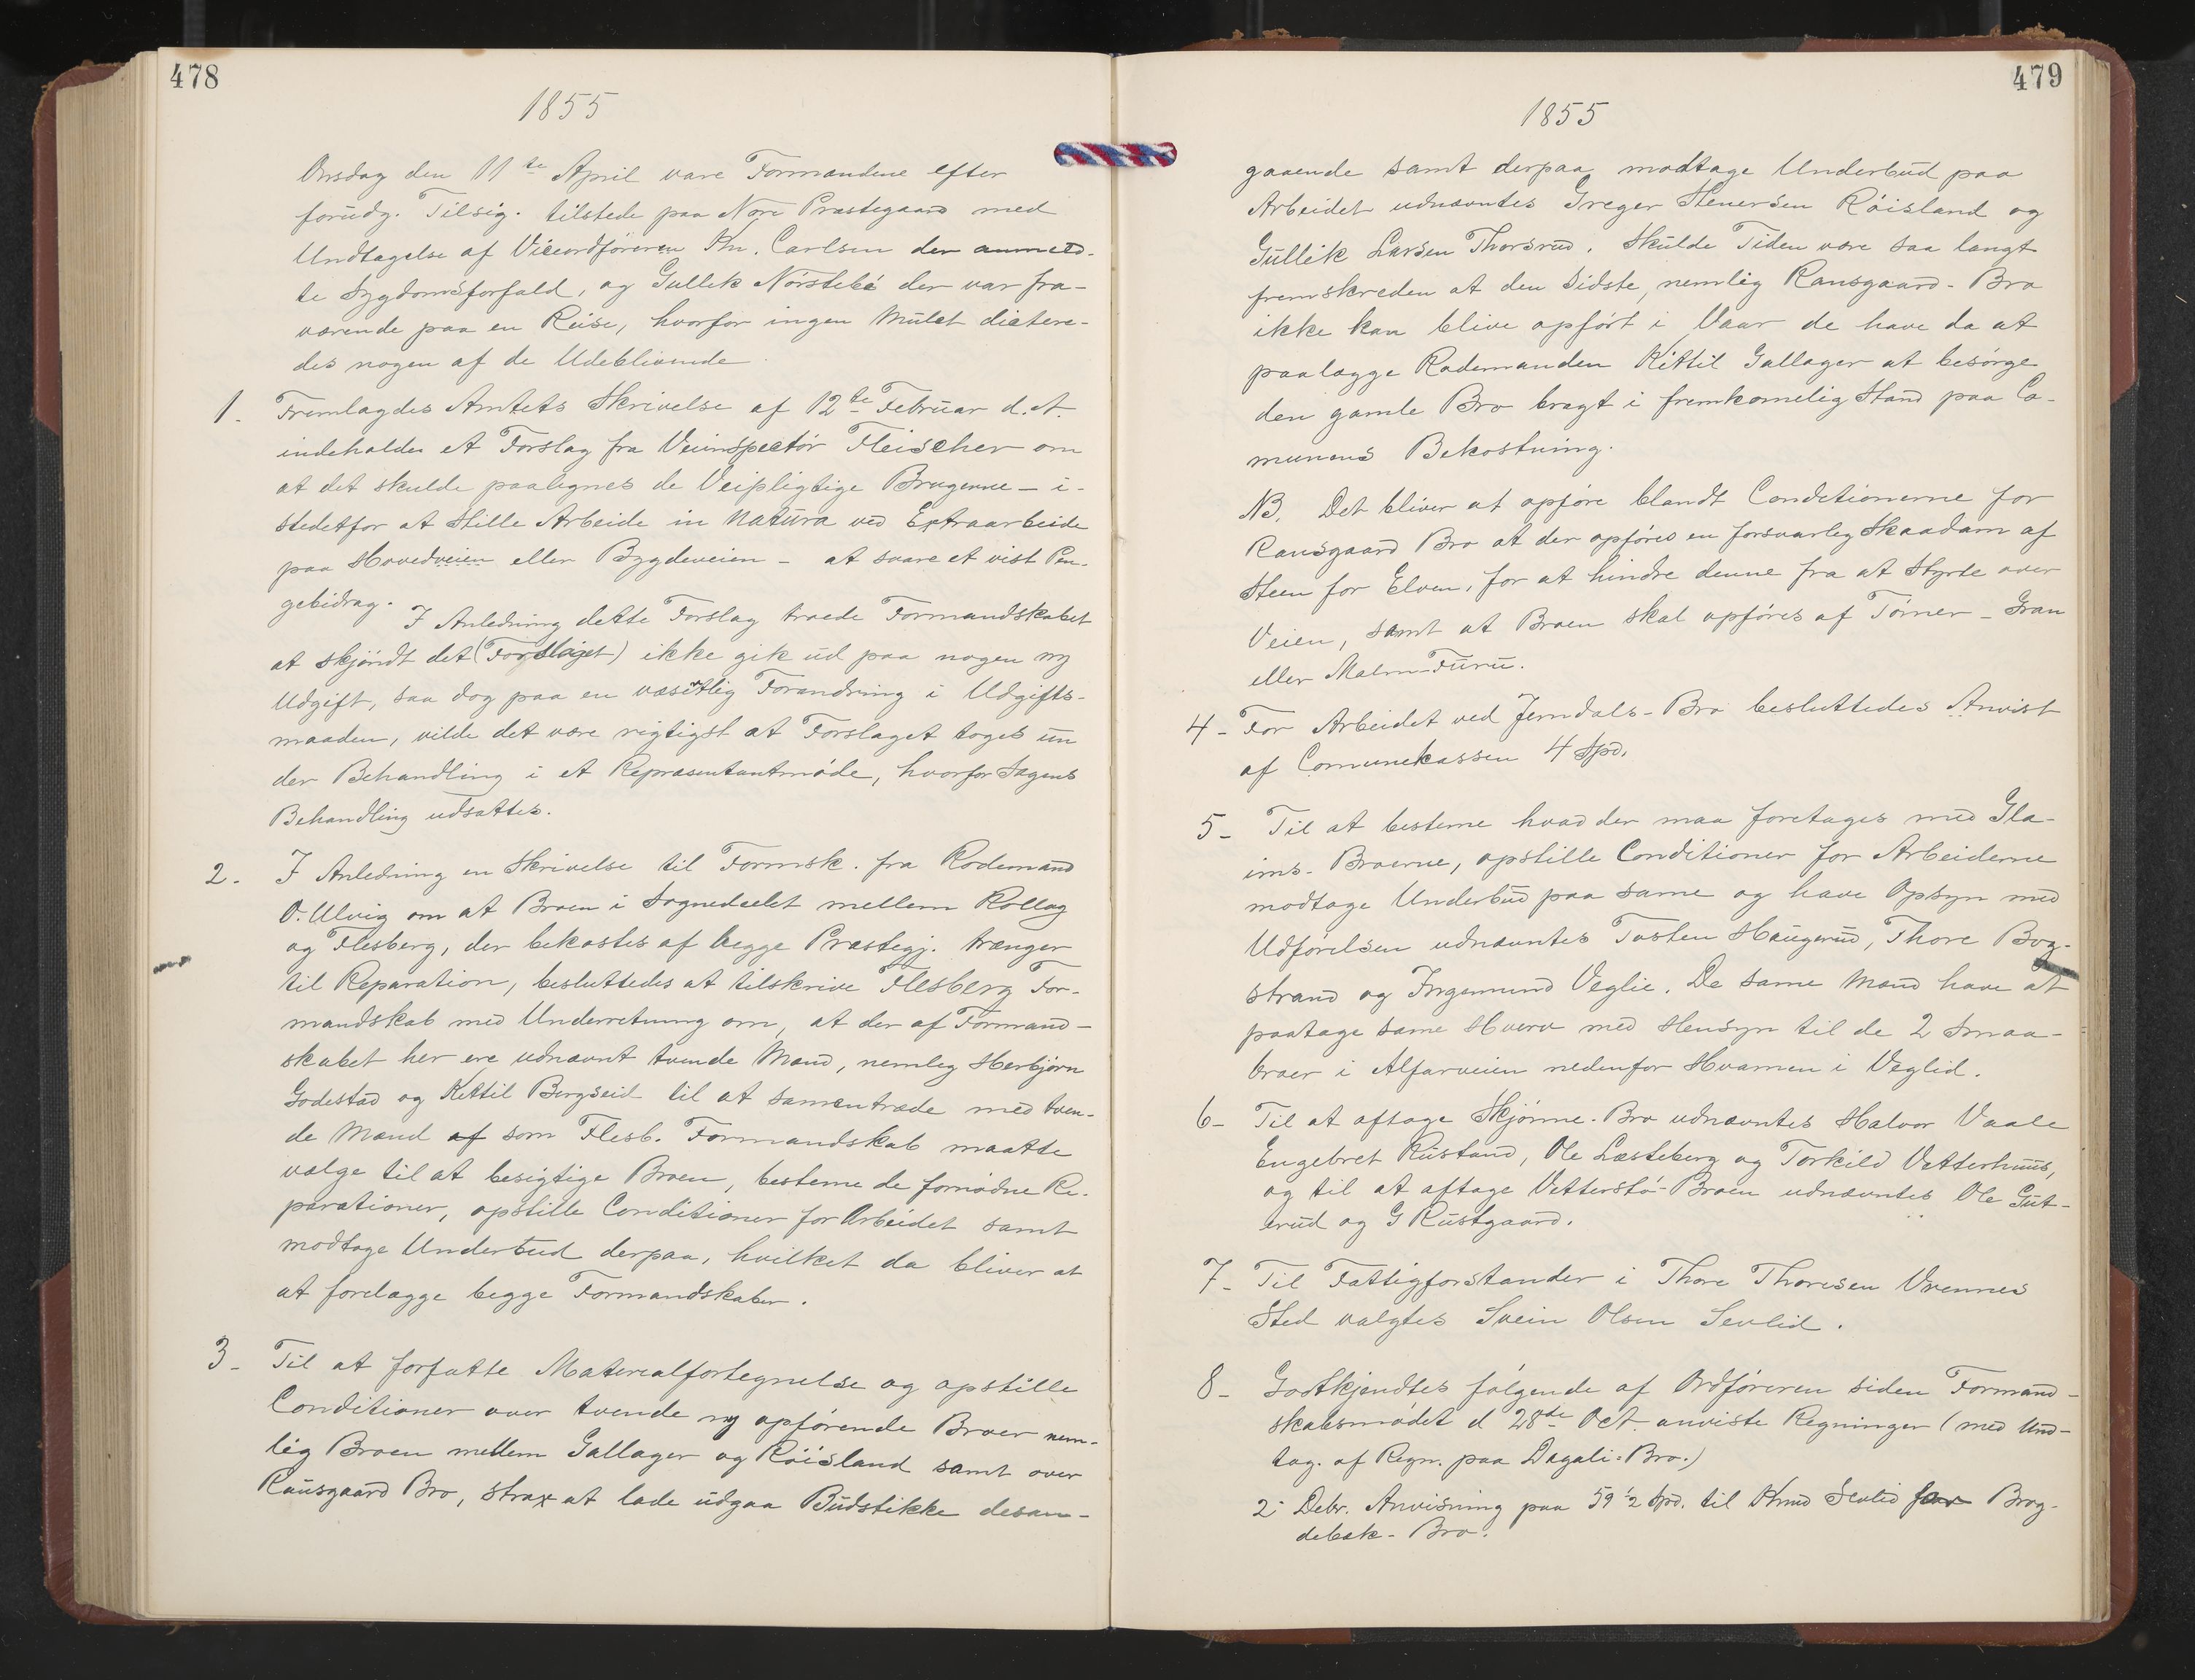 478
1855
Onsdag den 11te April vare Formændene efter
forudg. Tilsig. tilstede paa Nore Præstegaard med
Undtagelse af Viceordföreren Kn. Carlsen der anmeld-
te Sygdomsforfald, og Gullek Nörstebö der var fra-
værende paa en Reise, hvorfor ingen Mulct dictere-
des nogen af de Udeblivende.
1. Fremlagdes Amtets Skrivelse af 12te Februar d. A.
indeholder et Forslag fra Veiinspectör Fleischer om
at det skulde paalegnes de Veipligtige Brugerne - i-
stedetfor at stille Arbeide in Natura ved Extraarbeide
paa Hovedveien eller Bygdeveien - at svare et vist Pen-
gebidrag. I Anledning dette Forslag troede Formandskabet
at skjöndt det (Forslaget) ikke gik ud paa nogen ny
Udgift, saa dog paa en væsentlig Forandring i Udgifts-
maaden, vilde det være rigtigst at Forslaget toges un
der Behandling i et Repræsentantmöde, hvorfor Sagens
Behandling udsattes.
2. I Anledning en Skrivelse til Formsk. fra Rodemand
O. Ulvig om at Broen i Sognedeelet mellem Rollag
og Flesberg, der bekostes af begge Præstegj. trænger
til Reparation, besluttedes at tilskrive Flesberg For-
mandskab med Underretning om, at der af Formand-
skabet her ere udnævnt tvende Mænd, nemlig Herbjörn
Godestad og Kettil Bergseid til at samentræde med tven-
de Mænd af som Flesb. Formandskab maatte
vælge til at besigtige Broen, besteme de fornödne Re-
parationer, opstille Conditioner for Arbeidet samt
modtage Underbud derpaa, hvilket da bliver at
at forelægge begge Formandskaber.
3- Til at forfatte Materialfortegnelse og opstille
Conditioner over tvende ny opförende Broer nem-
lig Broen mellem Gallager og Röisland samt over
Rausgaard Bro, strax at lade udgaa Budstikke desan-
479
1855
gaaende samt derpaa modtage Underbud paa
Arbeidet udnævntes Greger Stenersen Röisland og
Gullik Larsen Thorsrud. Skulde Tiden være saa langt
fremskreden at den Sidste, nemlig Ransgaard-Bro
ikke kan blive opfört i Vaar de have da at
paalægge Rodemanden Kittil Gallager at besörge
den gamle Bro bragt i fremkomelig Stand paa Co-
munens Bekostning.
NB. Det bliver at opföre blandt Conditionerne for
Ransgaard Bro at der opföres en forsvarlig Skaadam af
Steen for Elven, for at hindre denne fra at Styrte over
Veien, samt at Broen skal opföres af Tömer - Gran
eller Malm-Furu.
4- For Arbeidet ved Jemdals-Bro besluttedes Anvist
af Comunekassen 4 Spd.
5- Til at besteme hvad der maa foretages med Gla-
ims-Broerne, opstille Conditioner for Arbeiderne
modtage Underbud paa same og have Opsyn med
Udförelsen udnævntes Tosten Haugerud, Thore Bog-
strand og Ingemund Veglie. De same Mænd have at
paatage same Hverv med Hensyn til de 2 Smaa-
broer i Alfarveien nedenfor Hvamen i Veglid.
6- Til at aftage Skjönne-Bro udnævntes Halvor Vaale
Engebret Rustand, Ole Læsteberg og Torkild Vetterhuus,
og til at aftage Vetterstö-Broen udnævntes Ole Gut-
erud og G Rustgaard.
7- Til Fattigforstander i Thore Thoresen Vrennes
Sted valgtes Svein Olsen Sevlid.
8- Godtkjendtes fölgende af Ordföreren siden Formand-
skabsmödet d 28de Oct. anviste Regninger (med Und-
tag. af Regn. paa Dagali-Bro.)
2- Debr. Anvisning paa 59 1/2 Spd. til Knud Sevlid for Brog-
debæk-Bro.